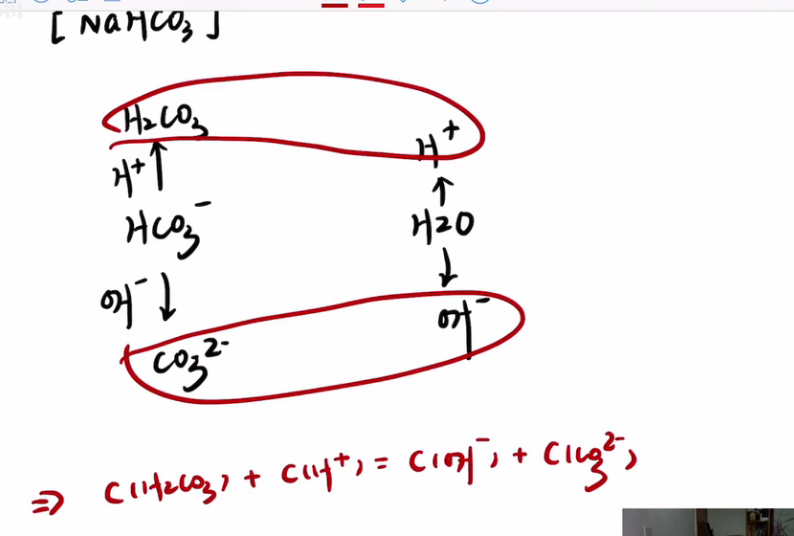 [NaHCO₃]
H₂CO₃ H⁺
H⁺↑ ↑
HCO₃⁻ H2O
OH⁻↓ ↓
CO₃²⁻ OH⁻
⇒ C(H₂CO₃) + C(H⁺) = C(OH⁻) + C(CO₃²⁻)